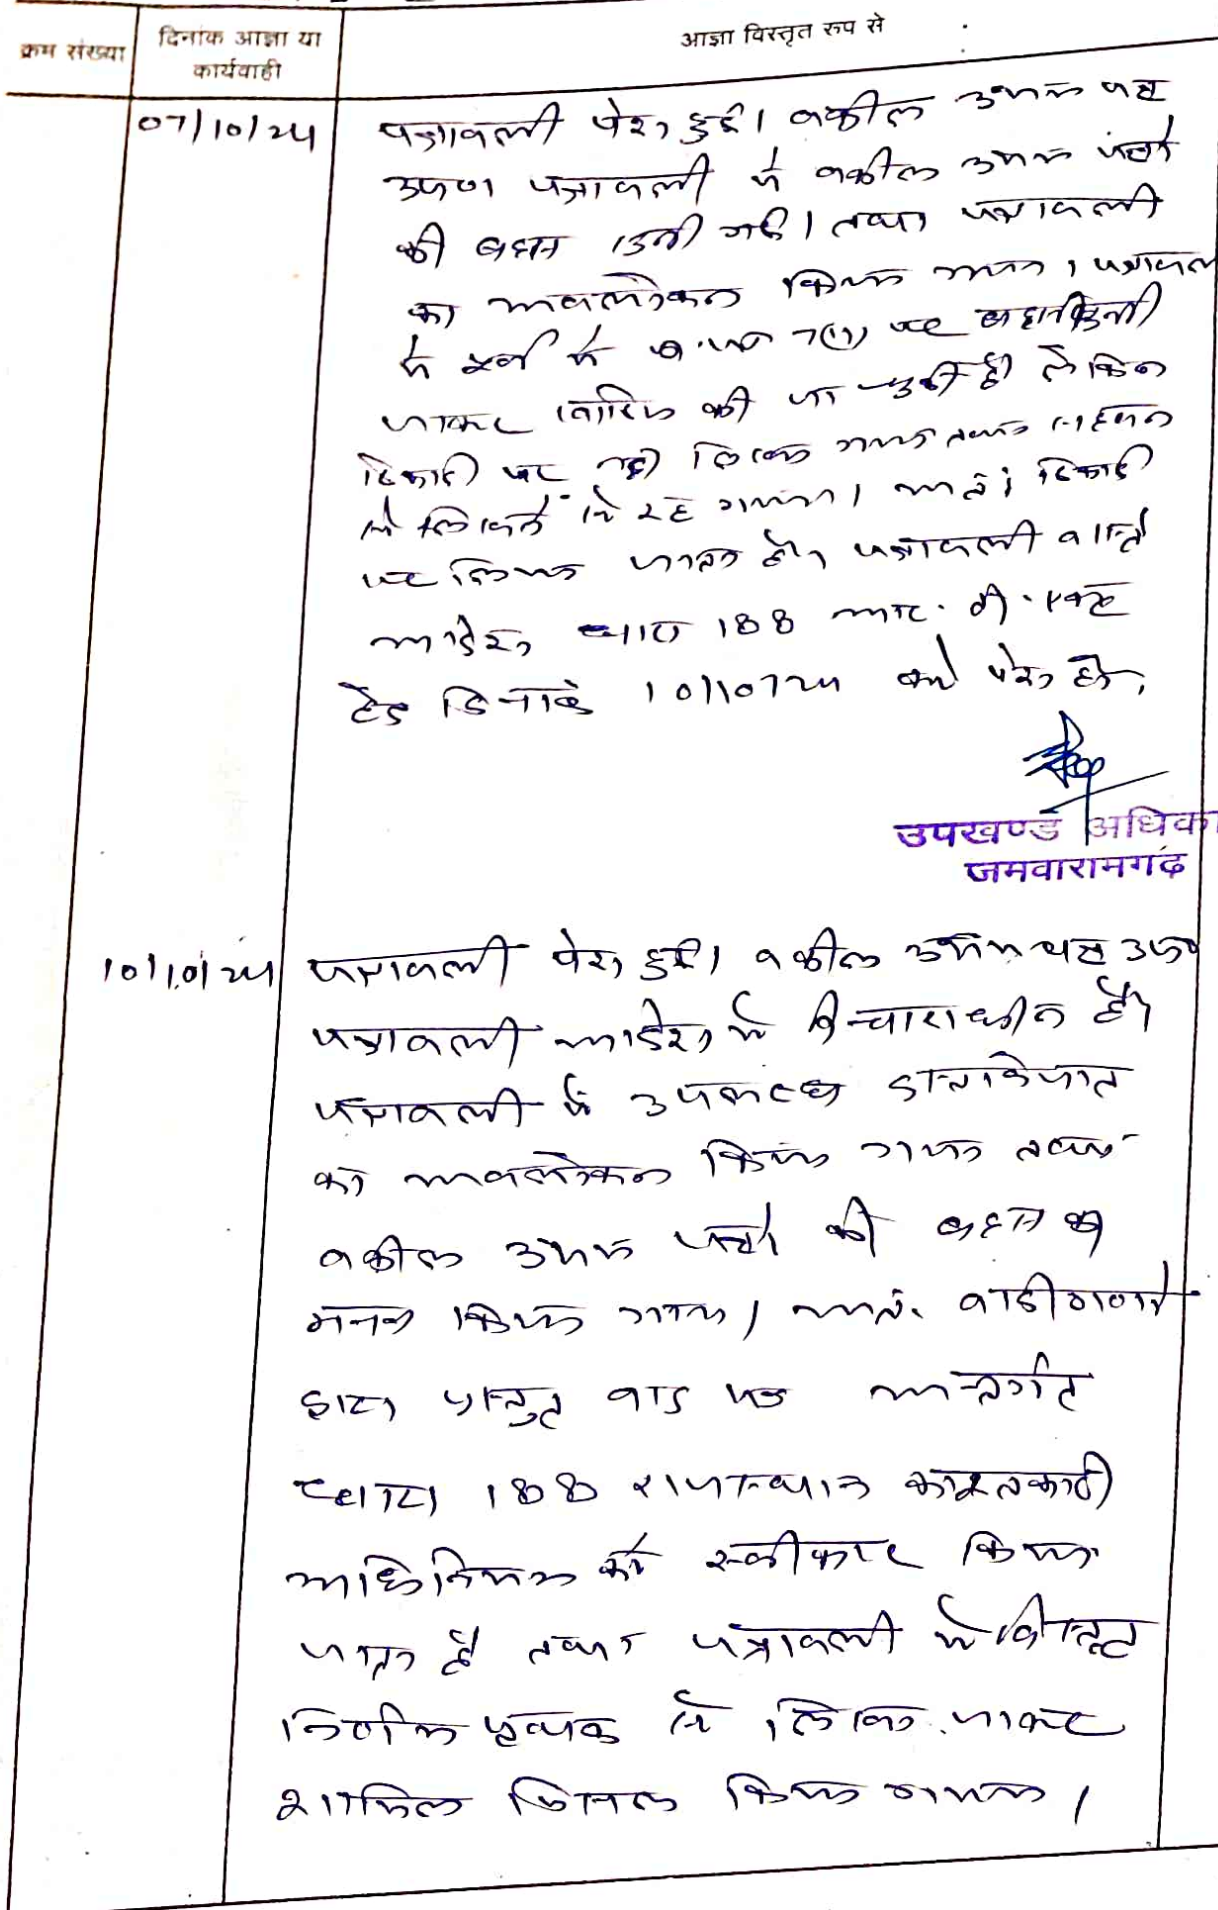 क्रम संख्या
दिनांक आज्ञा या
कार्यवाही
आज्ञा विस्तृत रूप से
07/10/24
पत्रावली पेश हुई। वकील उभय पक्ष
उप० पत्रावली में वकील उभय पक्षों
की बहस सुनी गई। तथा पत्रावली
का अवलोकन किया गया। पत्रावल
में पूर्व में 7(1) पर बहस सुनी
जाकर खारिज की जा चुकी है लेकिन
रिकार्ड पर नही लिया गया तथा सहवन
से लिखने से रह गया। अतः रिकार्ड
पर लिया जाता है। पत्रावली वास्ते
आदेश धारा 188 आर. टी. एक्ट
हेतु दिनांक 10/10/24 को पेश हो।
उपखण्ड अधिका
जमवारामगढ
10/10/24
पत्रावली पेश हुई। वकील उभय पक्ष उप०
पत्रावली आदेश में विचाराधीन है।
पत्रावली में उपलब्ध दस्तावेजात
का अवलोकन किया गया तथा
वकील उभय पक्षों की बहस का
मनन किया गया। अतः वादीगण
द्वारा प्रस्तुत वाद पत्र अन्तर्गत
धारा 188 राजस्थान काश्तकारी
अधिनियम को स्वीकार किया
जाता है तथा पत्रावली में विस्तृत
निर्णय पृथक से लिखा जाकर
शामिल मिसल किया गया।